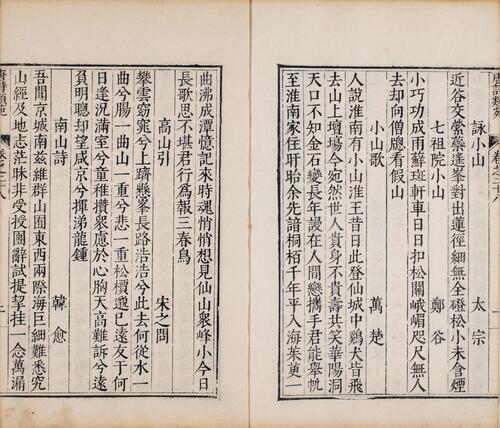 詠小山
太宗
近谷交縈蘂遙峯對出蓮徑細無全磴松小未含煙
七祖院小山
鄭谷
小巧功成雨蘚斑軒車日日扣松關峨嵋咫尺無人
去却向僧窻看假山
小山歌
萬楚
人說淮南有小山淮王昔日此登仙城中鷄犬皆飛
去山上壇場今宛然世人貴身不貴壽共笑華陽洞
天口不知金石變長年謾在人間戀攜手君能舉帆
至淮南家住盱眙余先諳桐栢千年平入海茱萸一
曲沸成潭憶記來時魂悄悄想見仙山衆峰小今日
長歌思不堪君行為報三春鳥
高山引
宋之問
攀雲窈窕兮上躋懸峯長路浩浩兮此去何從水一
曲兮腸一曲山一重兮悲一重松檟邈已遠友于何
日逢况滿室兮童稚攢衆慮於心胸天高難訴兮遠
負明聰却望咸京兮揮涕龍鍾
南山詩
韓愈
吾聞京城南茲維羣山囿東西兩際海巨細難悉究
山經及地志茫昧非受授團辭試提挈挂一念萬漏